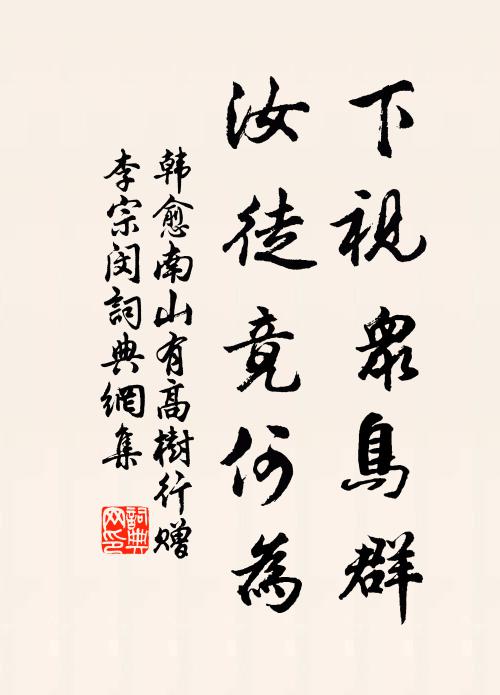 下視眾鳥群
汝徒竟何為
韩愈南山有高樹行赠
李宗闵詞典網集
詞典
网印